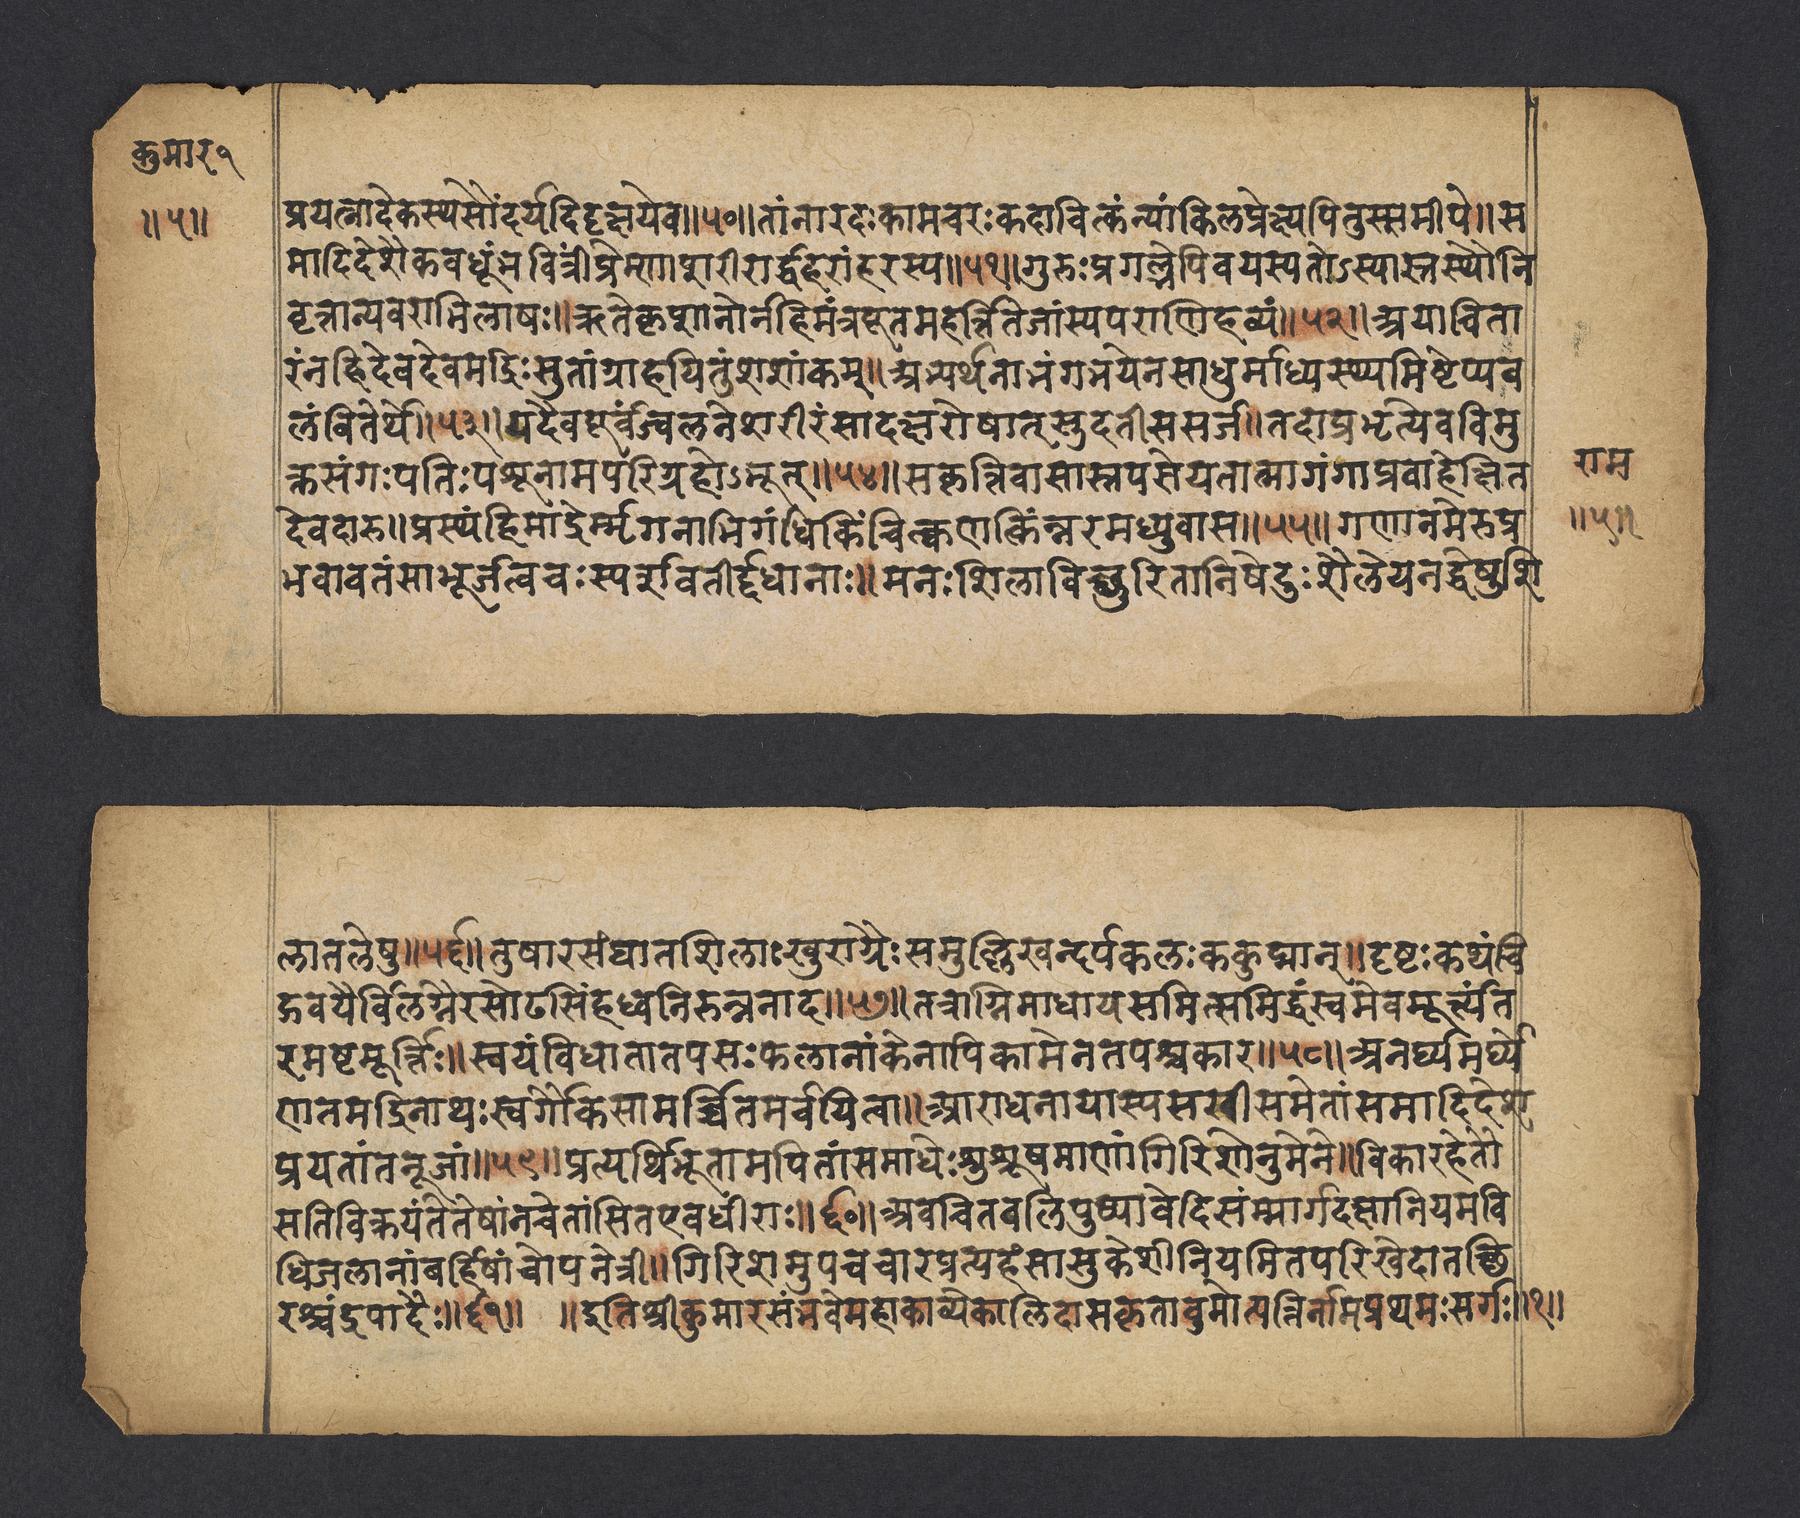 कुमार१
॥५॥
प्रयत्नादेकस्थसौंदर्यदिदृक्षयेव॥५०॥तांनारदःकामचरःकदाचित्कंन्यांकिलप्रेक्ष्यपितुस्समीपे॥स
मादिदेशैकवधूंभवित्रींप्रेम्णाशरीरार्द्धहरांहरस्य॥५१॥गुरुःप्रगल्भेपिवयस्यतोऽस्यास्तस्थौनि
वृत्तान्यवराभिलाषः॥ऋतेकृशानोर्नहिमंत्रपूतमर्हन्तितेजांस्यपराणिहव्यं॥५२॥अयाचिता
रंनहिदेवदेवमद्रिःसुतांग्राहयितुंशशांकम्॥अभ्यर्थनाभंगभयेनसाधुर्माध्यस्थ्यमिष्टेप्यव
लंबितेर्थे॥५३॥यदैवपूर्वंज्वलनेशरीरंसादक्षरोषात्सुदतीससर्ज॥तदाप्रभृत्येवविमु
क्तसंगःपतिःपशूनामपरिग्रहोऽभूत्॥५४॥सकृत्तिवासास्तपसेयतात्मागंगाप्रवाहोक्षित
देवदारु॥प्रस्थंहिमाद्रेर्म्मृगनाभिगंधिकिंचित्क्वणत्किंन्नरमध्युवास॥५५॥गणानमेरुप्र
भवावतंसाभूर्जत्वचःस्पर्शवतीर्द्दधानाः॥मनःशिलाविच्छुरितानिषेदुःशैलेयनद्धेषुशि
राम
॥५॥
लातलेषु॥५६॥तुषारसंघातशिलाःखुराग्रैःसमुल्लिखन्दर्पकलःककुद्मान्॥दृष्टःकथंचि
द्गवयैर्विलग्नैरसोढसिंहध्वनिरुन्ननाद॥५७॥तत्राग्निमाधायसमित्समिद्धंस्वमेवमूर्त्यंत
रमष्टमूर्त्तिः॥स्वयंविधातातपसःफलानांकेनापिकामेनतपश्चकार॥५८॥अनर्घ्यमर्घ्ये
णतमद्रिनाथःस्वर्गौकसामर्च्चितमर्चयित्वा॥आराधनायास्यसखीसमेतांसमादिदेश
प्रयतांतनूजां॥५९॥प्रत्यर्थिभूतामपितांसमाधेःशुश्रूषमाणांगिरिशोनुमेने॥विकारहेतौ
सतिविक्रयंतेतेषांनचेतांसितएवधीराः॥६०॥अवचितवलिपुष्पावेदिसंम्मार्गदक्षानियमवि
धिजलानांबर्हिषांचोपनेत्री॥गिरिशमुपचचारप्रत्यहंसासुकेशीनियमितपरिखेदातच्छि
रश्चंद्रपादैः॥६१॥ ॥इतिश्रीकुमारसंभवेमहाकाव्येकालिदासकृतावुमोत्पत्तिर्नामप्रथमःसर्गः॥१॥